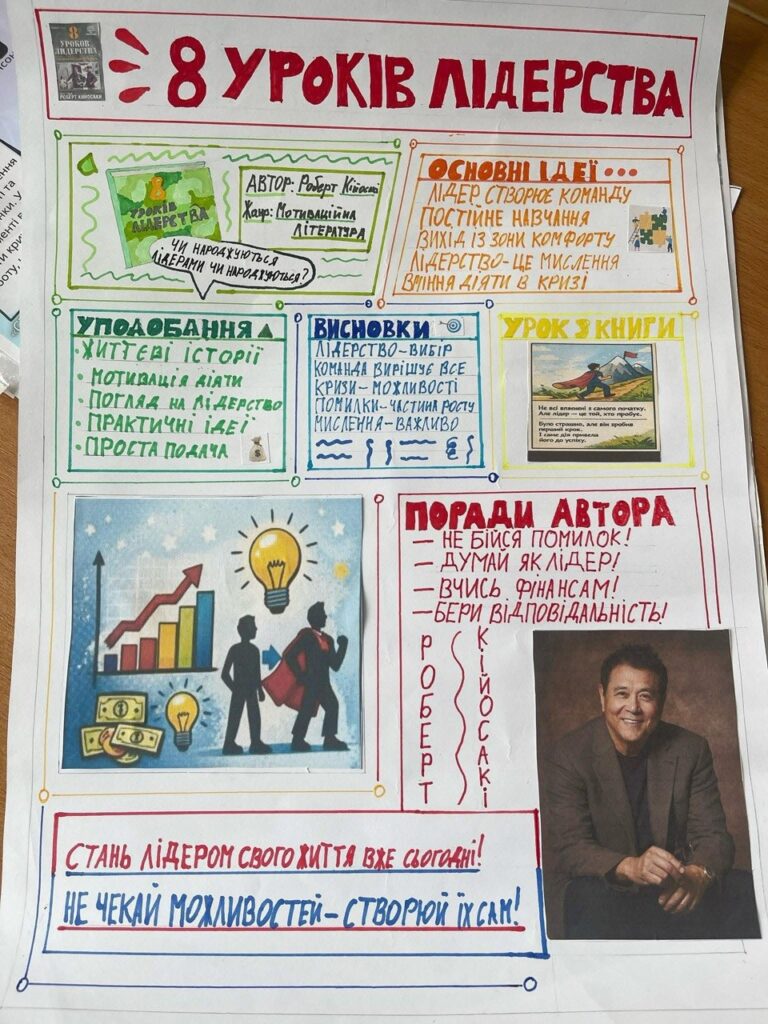 8
УРОКОВ
ЛИДЕРСТВА
РОБЕРТ КИЙОСАКИ
8 УРОКІВ ЛІДЕРСТВА
8
УРОКІВ
ЛІДЕРСТВА
АВТОР: Роберт Кійосакі
Жанр: Мотиваційна
ЛІТЕРАТУРА
ЧИ НАРОДЖУЮТЬСЯ
ЛІДЕРАМИ ЧИ НАРОДЖУЮТЬСЯ?
ОСНОВНІ ІДЕЇ •••
ЛІДЕР СТВОРЮЄ КОМАНДУ
ПОСТІЙНЕ НАВЧАННЯ
ВИХІД ІЗ ЗОНИ КОМФОРТУ
ЛІДЕРСТВО-ЦЕ МИСЛЕННЯ
ВМІННЯ ДІЯТИ В КРИЗІ
УПОДОБАННЯ
• ЖИТТЄВІ ІСТОРІЇ
• МОТИВАЦІЯ ДІЯТИ
• ПОГЛЯД НА ЛІДЕРСТВО
• ПРАКТИЧНІ ІДЕЇ
• ПРОСТА ПОДАЧА
ВИСНОВКИ
ЛІДЕРСТВО-ВИБІР
КОМАНДА ВИРІШУЄ ВСЕ
КРИЗИ- МОЖЛИВОСТІ
ПОМИЛКИ-ЧАСТИНА РОСТУ
МИСЛЕННЯ-ВАЖЛИВО
УРОК З КНИГИ
Не всі впевнені з самого початку.
Але лідер — це той, хто пробує.
Було страшно, але він зробив
перший крок.
І саме дія привела
його до успіху.
ПОРАДИ АВТОРА
— НЕ БІЙСЯ ПОМИЛОК!
— ДУМАЙ ЯК ЛІДЕР!
— ВЧИСЬ ФІНАНСАМ!
— БЕРИ ВІДПОВІДАЛЬНІСТЬ!
РОБЕРТ
КІЙОСАКІ
СТАНЬ ЛІДЕРОМ СВОГО ЖИТТЯ ВЖЕ СЬОГОДНІ!
НЕ ЧЕКАЙ МОЖЛИВОСТЕЙ- СТВОРЮЙ ЇХ САМ!